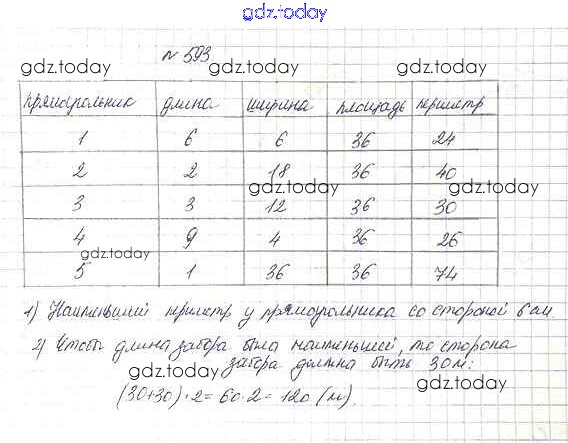 gdz.today
№ 593
gdz.today gdz.today gdz.today
прямоугольник длина ширина площадь периметр
1 6 6 36 24
2 2 18 36 40
gdz.today gdz.today
3 3 12 36 30
4 9 4 36 26
gdz.today
5 1 36 36 74
1) Наименьший периметр у прямоугольника со стороной 6 см
2) Чтобы длина забора была наименьшей, то сторона
забора должна быть 30 м:
gdz.today gdz.today
(30+30)·2=60·2=120 (м)